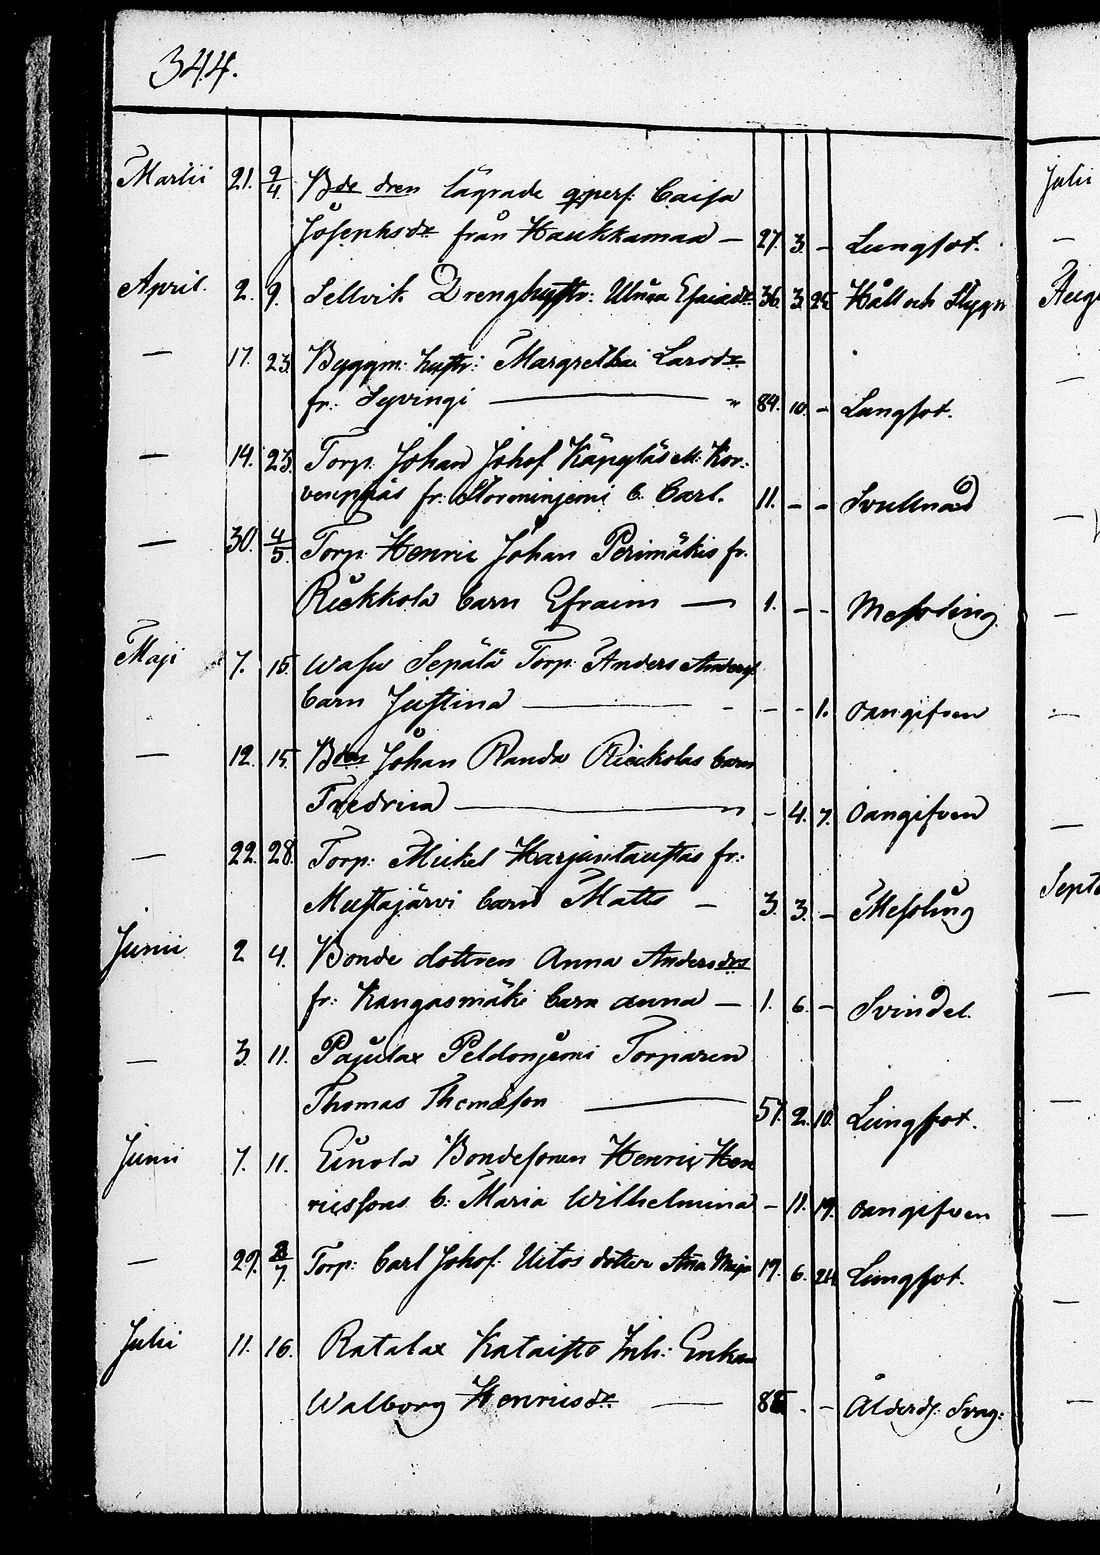 344.
Martii 21. 9/4. Bde dren lägrade qpers. Caisa
Josephsdr från Haukkamaa — 27. 3. - Lungsot.
April. 2. 9. Sellvik Drenghustr: Ulrica Esaiadr 36. 3. 25. Håll och Stygn
— 17. 23. Byggm: hustr: Margretha Larsdr
fr. Syvingi — " 84. 10. - Lungsot.
— 14. 23. Torp. Johan Johos.
fr. Storminjemi b. Carl. 11. - - Svullnad
— 30. 4/5. Torp. Henric Johan Perimäkis fr.
Riekkola barn Efraim — 1. - - Messling
Maji 7. 15. Wasu Sepälä Torp. Anders Anders
barn Justina — - - - 1. oangifven
— 12. 15. Bden Johan Randa Rieckolas barn
Fredrica — " - 4. 7. oangifven
— 22. 28. Torp: Mickel Harjuntaustas fr:
Mustajärvi barn Matts - 3. 3. - Messling
Junii 2 4. Bonde dottren Anna Andersdrs
fr: Kangasmäki barn Anna — 1. 6. - Svindel.
— 3. 11. Pajulax Peldonjemi Torparen
Thomas Thomasson — 57. 2. 10. Lungsot.
Junii 7. 11. Einola Bondesonen Henric Hen
ricssons b: Maria Wilhelmina - 11. 19. oangifven
— 29. 2/7. Torp: Carl Johos. Uitos dotter Ana Maja 17. 6. 24. Lungsot.
Julii 11. 16. Ratalax Kataisto Inh: Enkan
Walborg Henricsdr. — 88 - - Ålderds: Svag:
Julii
—
Aug
—
—
—
—
—
Sept
—
—
—
—
—